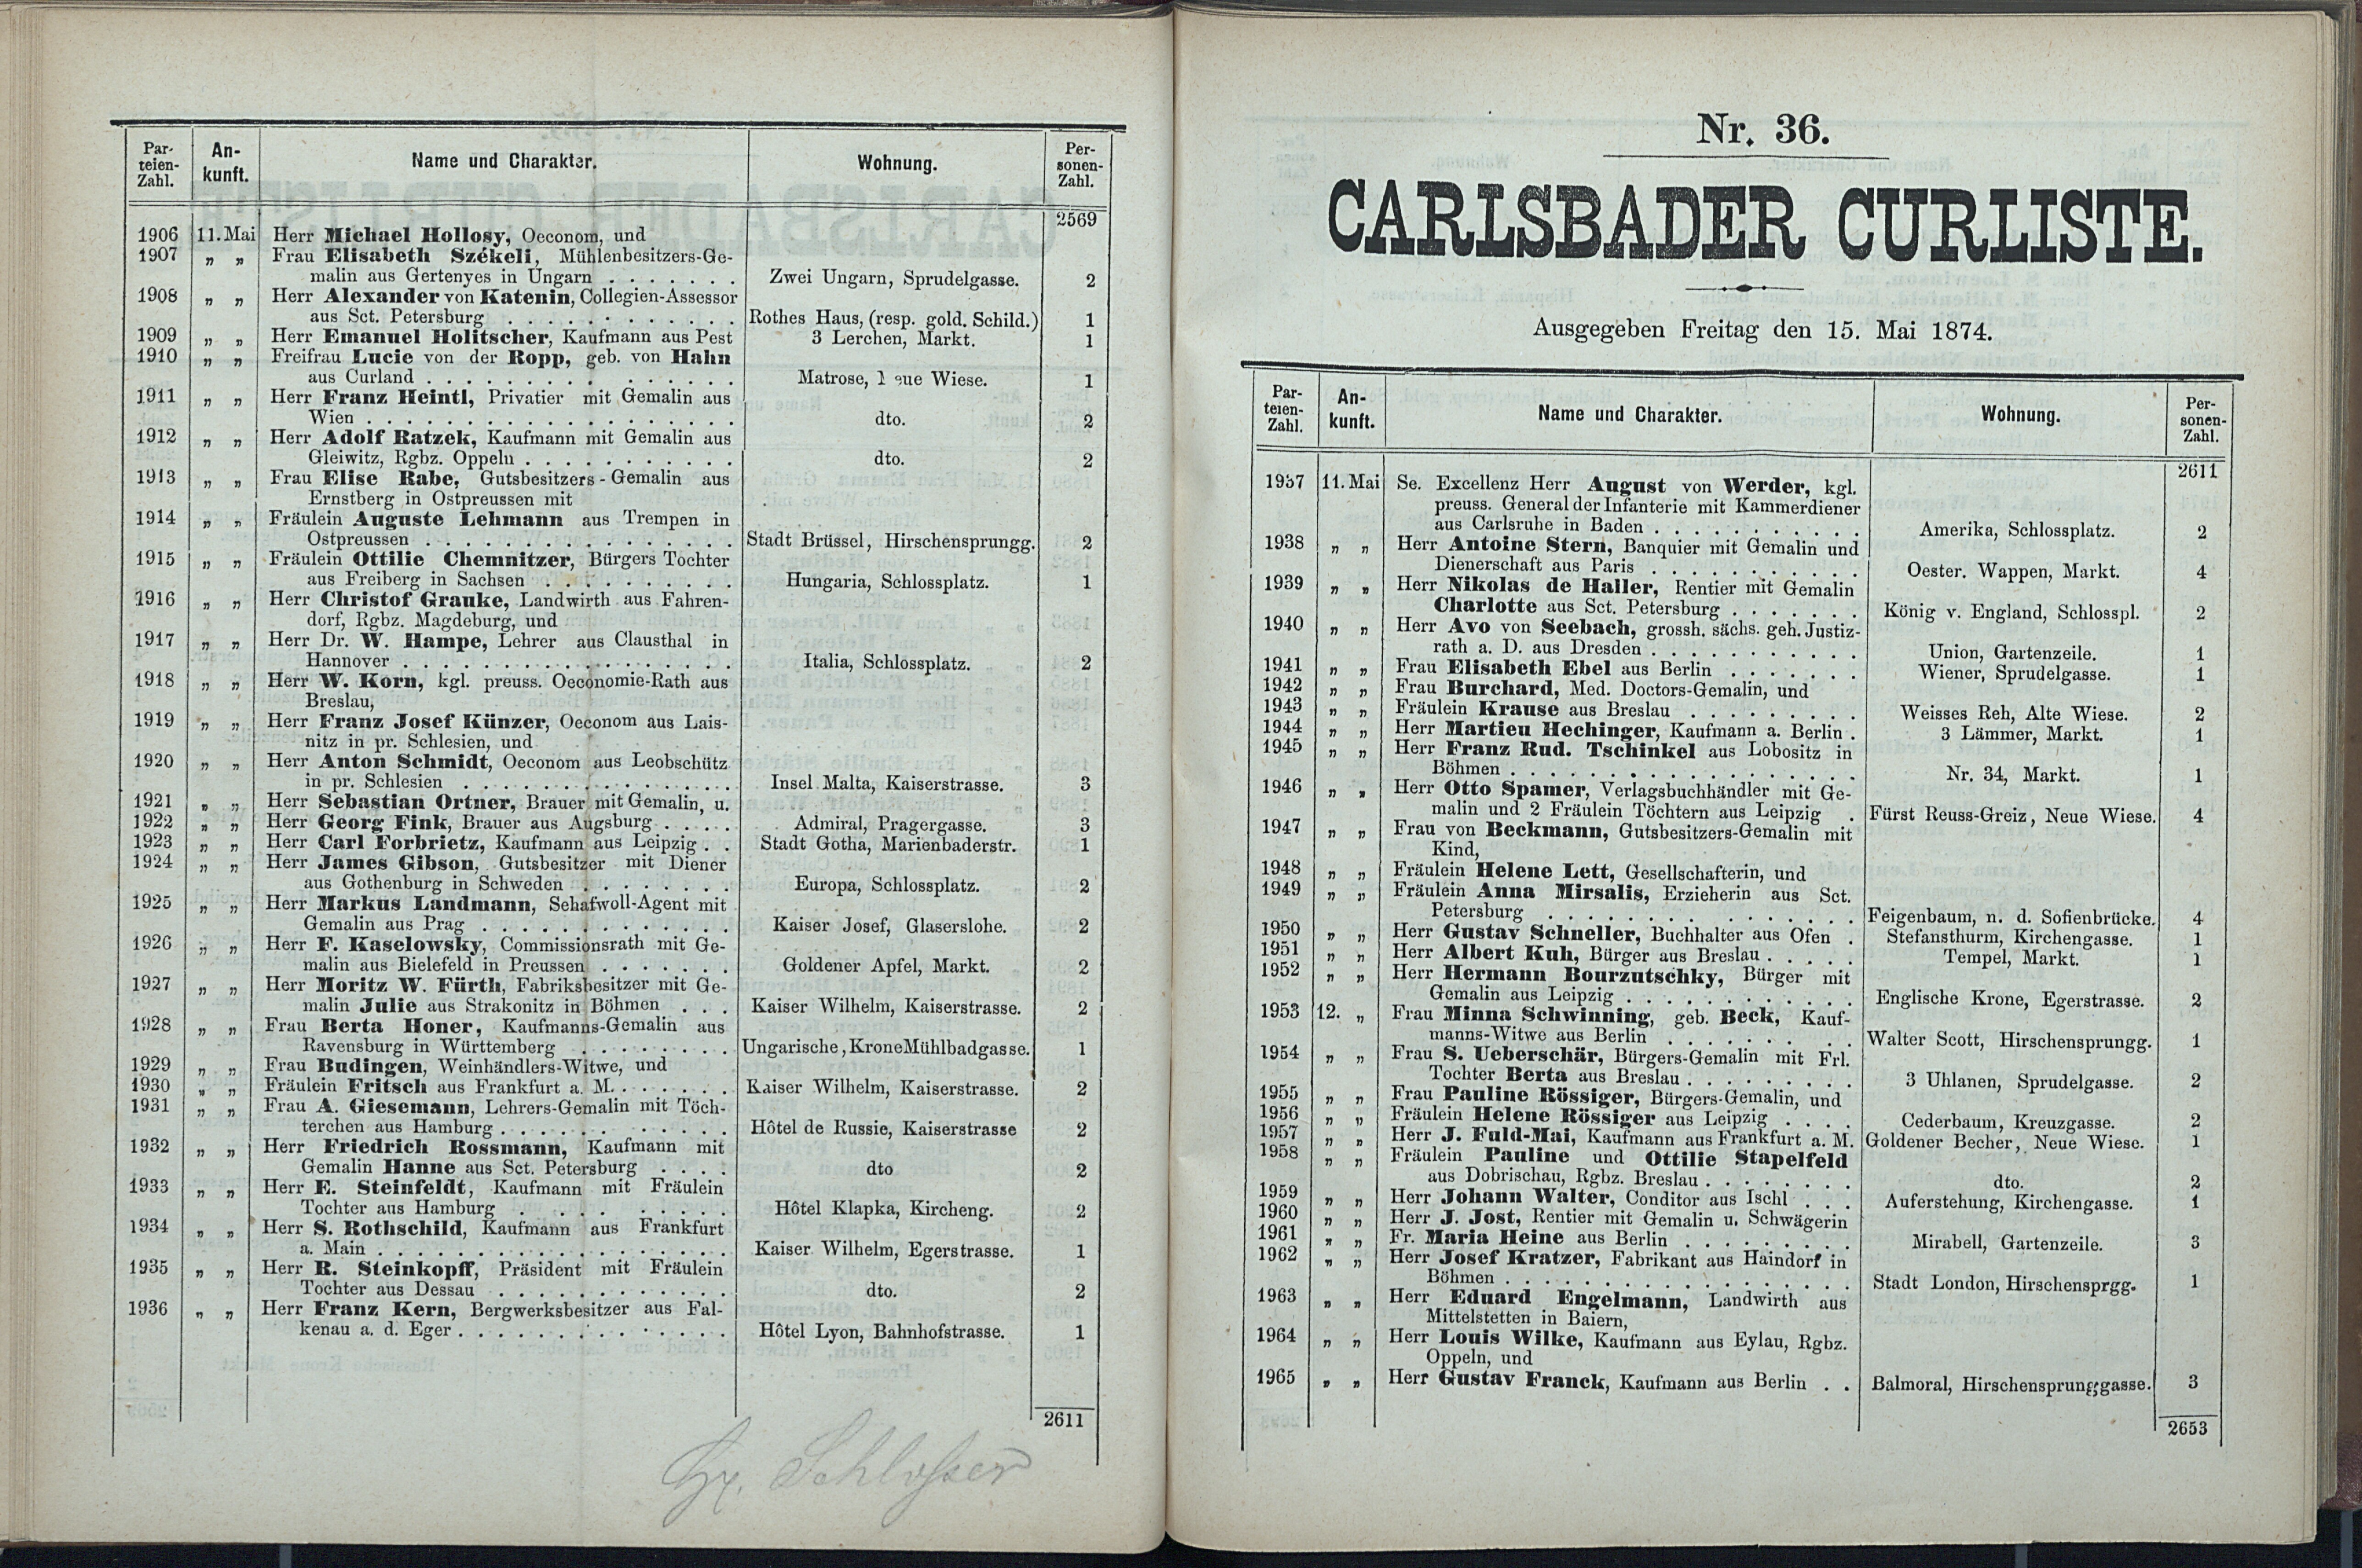 Par-
teien-
Zahl.
An-
kunft.
Name und Charakter.
Wohnung.
Per-
sonen-
Zahl.
2569
1906 11. Mai Herr Michael Hollosy, Oeconom, und
1907 „ „ Frau Elisabeth Székeli, Mühlenbesitzers-Ge-
malin aus Gertenyes in Ungarn . . . . . . . Zwei Ungarn, Sprudelgasse. 2
1908 „ „ Herr Alexander von Katenin, Collegien-Assessor
aus Sct. Petersburg . . . . . . . . . . . . Rothes Haus, (resp. gold. Schild.) 1
1909 „ „ Herr Emanuel Holitscher, Kaufmann aus Pest 3 Lerchen, Markt. 1
1910 „ „ Freifrau Lucie von der Ropp, geb. von Hahn
aus Curland . . . . . . . . . . . . . . . . Matrose, eue Wiese. 1
1911 „ „ Herr Franz Heintl, Privatier mit Gemalin aus
Wien . . . . . . . . . . . . . . . . . . . dto. 2
1912 „ „ Herr Adolf Ratzek, Kaufmann mit Gemalin aus
Gleiwitz, Rgbz. Oppeln . . . . . . . . . . . dto. 2
1913 „ „ Frau Elise Rabe, Gutsbesitzers-Gemalin aus
Ernstberg in Ostpreussen mit
1914 „ „ Fräulein Auguste Lehmann aus Trempen in
Ostpreussen . . . . . . . . . . . . . . . . Stadt Brüssel, Hirschensprungg. 2
1915 „ „ Fräulein Ottilie Chemnitzer, Bürgers Tochter
aus Freiberg in Sachsen . . . . . . . . . . Hungaria, Schlossplatz. 1
1916 „ „ Herr Christof Grauke, Landwirth aus Fahren-
dorf, Rgbz. Magdeburg, und
1917 „ „ Herr Dr. W. Hampe, Lehrer aus Clausthal in
Hannover . . . . . . . . . . . . . . . . . Italia, Schlossplatz. 2
1918 „ „ Herr W. Korn, kgl. preuss. Oeconomie-Rath aus
Breslau,
1919 „ „ Herr Franz Josef Künzer, Oeconom aus Lais-
nitz in pr. Schlesien, und
1920 „ „ Herr Anton Schmidt, Oeconom aus Leobschütz
in pr. Schlesien . . . . . . . . . . . . . . Insel Malta, Kaiserstrasse. 3
1921 „ „ Herr Sebastian Ortner, Brauer mit Gemalin, u.
1922 „ „ Herr Georg Fink, Brauer aus Augsburg . . . . Admiral, Pragergasse. 3
1923 „ „ Herr Carl Forbrietz, Kaufmann aus Leipzig . . Stadt Gotha, Marienbaderstr. 1
1924 „ „ Herr James Gibson, Gutsbesitzer mit Diener
aus Gothenburg in Schweden . . . . . . . . Europa, Schlossplatz. 2
1925 „ „ Herr Markus Landmann, Schafwoll-Agent mit
Gemalin aus Prag . . . . . . . . . . . . . Kaiser Josef, Glaserslohe. 2
1926 „ „ Herr F. Kaselowsky, Commissionsrath mit Ge-
malin aus Bielefeld in Preussen . . . . . . . Goldener Apfel, Markt. 2
1927 „ „ Herr Moritz W. Fürth, Fabriksbesitzer mit Ge-
malin Julie aus Strakonitz in Böhmen . . . Kaiser Wilhelm, Kaiserstrasse. 2
1928 „ „ Frau Berta Honer, Kaufmanns-Gemalin aus
Ravensburg in Württemberg . . . . . . . . Ungarische, Krone Mühlbadgasse. 1
1929 „ „ Frau Budingen, Weinhändlers-Witwe, und
1930 „ „ Fräulein Fritsch aus Frankfurt a. M. . . . . . Kaiser Wilhelm, Kaiserstrasse. 2
1931 „ „ Frau A. Giesemann, Lehrers-Gemalin mit Töch-
terchen aus Hamburg . . . . . . . . . . . . Hôtel de Russie, Kaiserstrasse 2
1932 „ „ Herr Friedrich Rossmann, Kaufmann mit
Gemalin Hanne aus Sct. Petersburg . . . . dto 2
1933 „ „ Herr E. Steinfeldt, Kaufmann mit Fräulein
Tochter aus Hamburg . . . . . . . . . . . Hôtel Klapka, Kircheng. 2
1934 „ „ Herr S. Rothschild, Kaufmann aus Frankfurt
a. Main . . . . . . . . . . . . . . . . . . Kaiser Wilhelm, Egerstrasse. 1
1935 „ „ Herr R. Steinkopff, Präsident mit Fräulein
Tochter aus Dessau . . . . . . . . . . . . dto. 2
1936 „ „ Herr Franz Kern, Bergwerksbesitzer aus Fal-
kenau a. d. Eger . . . . . . . . . . . . . . Hôtel Lyon, Bahnhofstrasse. 1
2611
Schlosser
Nr. 36.
CARLSBADER CURLISTE.
Ausgegeben Freitag den 15. Mai 1874.
Par-
teien-
Zahl.
An-
kunft.
Name und Charakter.
Wohnung.
Per-
sonen-
Zahl.
2611
1937 11. Mai Se. Excellenz Herr August von Werder, kgl.
preuss. General der Infanterie mit Kammerdiener
aus Carlsruhe in Baden . . . . . . . . . . . Amerika, Schlossplatz. 2
1938 „ „ Herr Antoine Stern, Banquier mit Gemalin und
Dienerschaft aus Paris . . . . . . . . . . . Oester. Wappen, Markt. 4
1939 „ „ Herr Nikolas de Haller, Rentier mit Gemalin
Charlotte aus Sct. Petersburg . . . . . . . König v. England, Schlosspl. 2
1940 „ „ Herr Avo von Seebach, grossh. sächs. geh. Justiz-
rath a. D. aus Dresden . . . . . . . . . . . Union, Gartenzeile. 1
1941 „ „ Frau Elisabeth Ebel aus Berlin . . . . . . . Wiener, Sprudelgasse. 1
1942 „ „ Frau Burchard, Med. Doctors-Gemalin, und
1943 „ „ Fräulein Krause aus Breslau . . . . . . . . . Weisses Reh, Alte Wiese. 2
1944 „ „ Herr Martieu Hechinger, Kaufmann a. Berlin . 3 Lämmer, Markt. 1
1945 „ „ Herr Franz Rud. Tschinkel aus Lobositz in
Böhmen . . . . . . . . . . . . . . . . . . Nr. 34, Markt. 1
1946 „ „ Herr Otto Spamer, Verlagsbuchhändler mit Ge-
malin und 2 Fräulein Töchtern aus Leipzig . Fürst Reuss-Greiz, Neue Wiese. 4
1947 „ „ Frau von Beckmann, Gutsbesitzers-Gemalin mit
Kind,
1948 „ „ Fräulein Helene Lett, Gesellschafterin, und
1949 „ „ Fräulein Anna Mirsalis, Erzieherin aus Sct.
Petersburg . . . . . . . . . . . . . . . . Feigenbaum, n. d. Sofienbrücke. 4
1950 „ „ Herr Gustav Schneller, Buchhalter aus Ofen . Stefansthurm, Kirchengasse. 1
1951 „ „ Herr Albert Kuh, Bürger aus Breslau . . . . . Tempel, Markt. 1
1952 „ „ Herr Hermann Bourzutschky, Bürger mit
Gemalin aus Leipzig . . . . . . . . . . . . Englische Krone, Egerstrasse. 2
1953 12. „ Frau Minna Schwinning, geb. Beck, Kauf-
manns-Witwe aus Berlin . . . . . . . . . . Walter Scott, Hirschensprungg. 1
1954 „ „ Frau S. Ueberschär, Bürgers-Gemalin mit Frl.
Tochter Berta aus Breslau . . . . . . . . . 3 Uhlanen, Sprudelgasse. 2
1955 „ „ Frau Pauline Rössiger, Bürgers-Gemalin, und
1956 „ „ Fräulein Helene Rössiger aus Leipzig . . . . Cederbaum, Kreuzgasse. 2
1957 „ „ Herr J. Fuld-Mai, Kaufmann aus Frankfurt a. M. Goldener Becher, Neue Wiese. 1
1958 „ „ Fräulein Pauline und Ottilie Stapelfeld
aus Dobrischau, Rgbz. Breslau . . . . . . . . dto. 2
1959 „ „ Herr Johann Walter, Conditor aus Ischl . . . Auferstehung, Kirchengasse. 1
1960 „ „ Herr J. Jost, Rentier mit Gemalin u. Schwägerin
1961 „ „ Fr. Maria Heine aus Berlin . . . . . . . . . Mirabell, Gartenzeile. 3
1962 „ „ Herr Josef Kratzer, Fabrikant aus Haindorf in
Böhmen . . . . . . . . . . . . . . . . . . Stadt London, Hirschensprgg. 1
1963 „ „ Herr Eduard Engelmann, Landwirth aus
Mittelstetten in Baiern,
1964 „ „ Herr Louis Wilke, Kaufmann aus Eylau, Rgbz.
Oppeln, und
1965 „ „ Herr Gustav Franck, Kaufmann aus Berlin . . Balmoral, Hirschensprunggasse. 3
2653